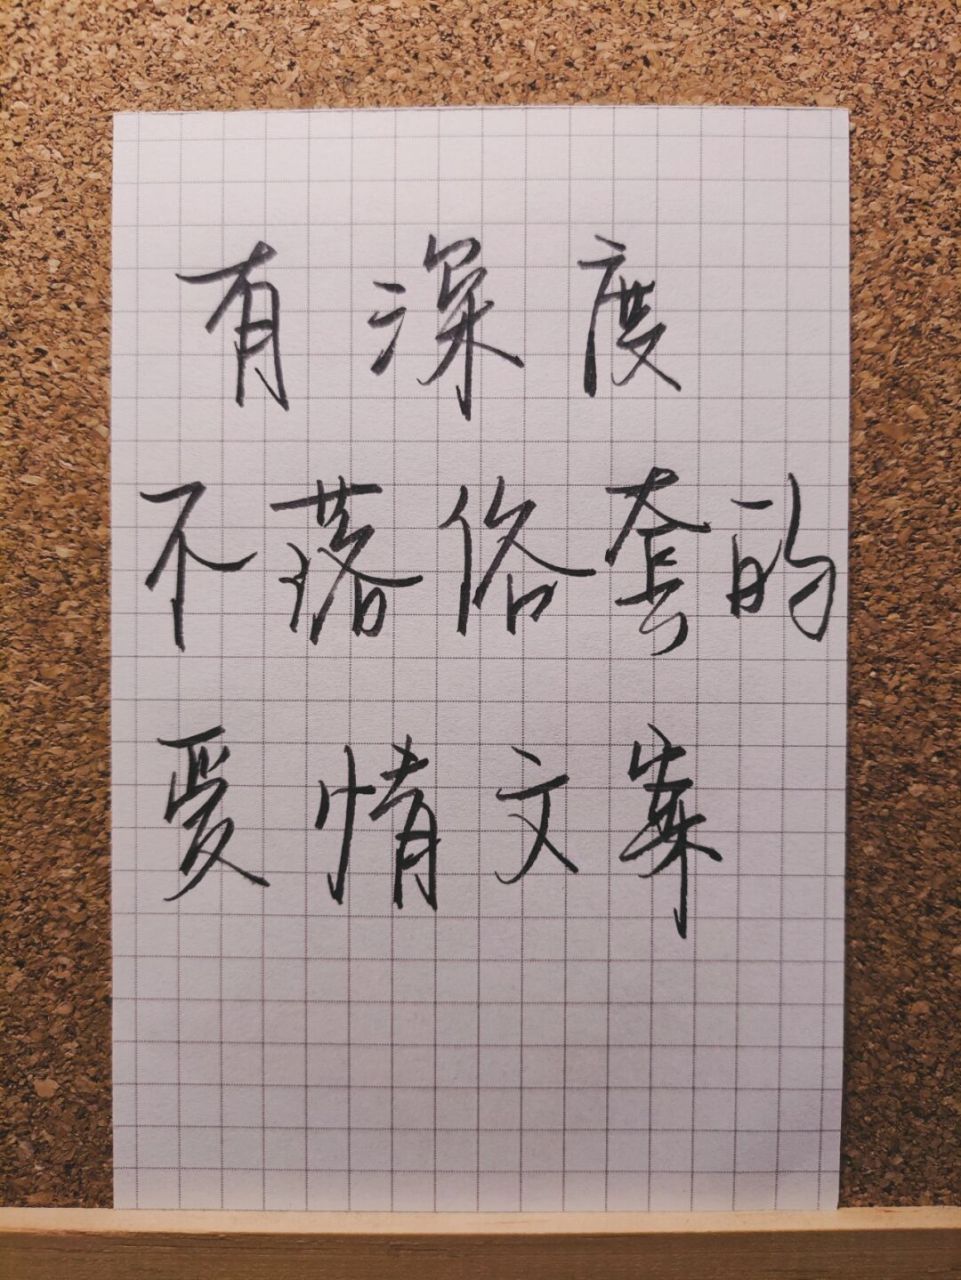 有深度
不落俗套的
爱情文案